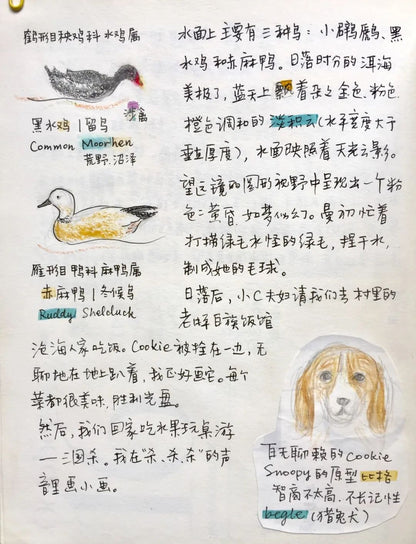 鹤形目秧鸡科水鸡属
浅滩
黑水鸡 | 留鸟
Common Moorhen
荒野.沼泽
雁形目鸭科麻鸭属
赤麻鸭 | 冬候鸟
Ruddy Shelduck
水面上主要有三种鸟：小䴙䴘、黑
水鸡和赤麻鸭。日落时分的洱海
美极了，蓝天上飘着朵朵金色、粉色
橙色调和的淡积云(水平宽度大于
垂直厚度)，水面映照着天光云影。
望远镜的圆形视野中呈现出一个粉
色的黄昏，如梦似幻。曼初忙着
打捞绿毛水怪的绿毛，捏干水，
制成她的毛球。
日落后，小C夫妇请我们去村里的
老字号白族饭馆
沧海人家吃饭。Cookie被拴在一边，无
聊地在地上趴着，我正好画它。每个
菜都很美味，胜利光盘。
然后，我们回家吃水果玩桌游
——三国杀。我在“杀、杀、杀”的声
音里画小画。
百无聊赖的Cookie
Snoopy的原型 比格
智商不太高.不长记性
begle (猎兔犬)